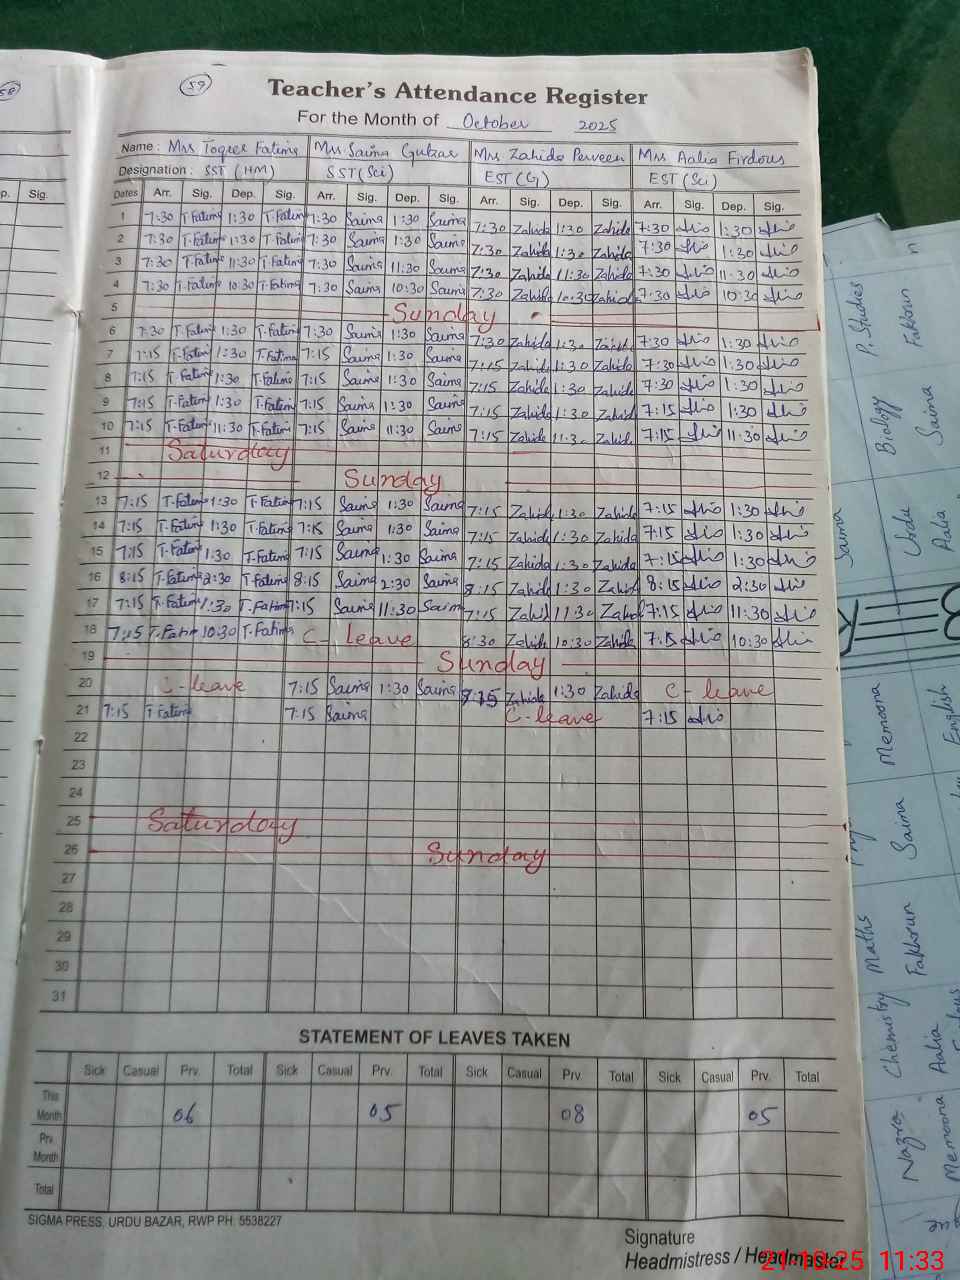 58
59
Teacher's Attendance Register
For the Month of October 2025
Name : Mrs Toqeer Fatima Mrs Saima Gulzar Mrs Zahida Perveen Mrs Aalia Firdous
Designation : SST (HM) SST (Sci) EST (G) EST (Sci)
p. Sig. Dates Arr. Sig. Dep. Sig. Arr. Sig. Dep. Sig. Arr. Sig. Dep. Sig. Arr. Sig. Dep. Sig.
1 7:30 T.Fatima 1:30 T.Fatima 7:30 Saima 1:30 Saima 7:30 Zahida 1:30 Zahida 7:30 1:30
2 7:30 T.Fatima 1:30 T.Fatima 7:30 Saima 1:30 Saima 7:30 Zahida 1:30 Zahida 7:30 1:30
3 7:30 T.Fatima 11:30 T.Fatima 7:30 Saima 11:30 Saima 7:30 Zahida 11:30 Zahida 7:30 11:30
4 7:30 T.Fatima 10:30 T.Fatima 7:30 Saima 10:30 Saima 7:30 Zahida 10:30 Zahida 7:30 10:30
5 Sunday
6 7:30 T.Fatima 1:30 T.Fatima 7:30 Saima 1:30 Saima 7:30 Zahida 1:30 Zahida 7:30 1:30
7 7:15 T.Fatima 1:30 T.Fatima 7:15 Saima 1:30 Saima 7:15 Zahida 1:30 Zahida 7:30 1:30
8 7:15 T.Fatima 1:30 T.Fatima 7:15 Saima 1:30 Saima 7:15 Zahida 1:30 Zahida 7:30 1:30
9 7:15 T.Fatima 1:30 T.Fatima 7:15 Saima 1:30 Saima 7:15 Zahida 1:30 Zahida 7:15 1:30
10 7:15 T.Fatima 11:30 T.Fatima 7:15 Saima 11:30 Saima 7:15 Zahida 11:30 Zahida 7:15 11:30
11 Saturday
12 Sunday
13 7:15 T.Fatima 1:30 T.Fatima 7:15 Saima 1:30 Saima 7:15 Zahida 1:30 Zahida 7:15 1:30
14 7:15 T.Fatima 1:30 T.Fatima 7:15 Saima 1:30 Saima 7:15 Zahida 1:30 Zahida 7:15 1:30
15 7:15 T.Fatima 1:30 T.Fatima 7:15 Saima 1:30 Saima 7:15 Zahida 1:30 Zahida 7:15 1:30
16 8:15 T.Fatima 2:30 T.Fatima 8:15 Saima 2:30 Saima 8:15 Zahida 1:30 Zahida 8:15 2:30
17 7:15 T.Fatima 1:30 T.Fatima 7:15 Saima 11:30 Saima 7:15 Zahida 11:30 Zahida 7:15 11:30
18 7:15 T.Fatima 10:30 T.Fatima C-leave 8:30 Zahida 10:30 Zahida 7:15 10:30
19 Sunday
20 C-leave 7:15 Saima 1:30 Saima 7:15 Zahida 1:30 Zahida C-leave
21 7:15 T.Fatima 7:15 Saima C-leave 7:15
22
23
24
25 Saturday
26 Sunday
27
28
29
30
31
STATEMENT OF LEAVES TAKEN
Sick Casual Prv. Total Sick Casual Prv. Total Sick Casual Prv. Total Sick Casual Prv. Total
This Month 06 05 08 05
Prv. Month
Total
SIGMA PRESS, URDU BAZAR, RWP PH: 5538227
Signature
Headmistress / Headmaster
P. Studies Fakhrun
Biology Saima
Saima Urdu Aalia
Memoona English
Saima
Maths Fakhrun
Chemistry Aalia
Nazra Memoona
21-10-25 11:33